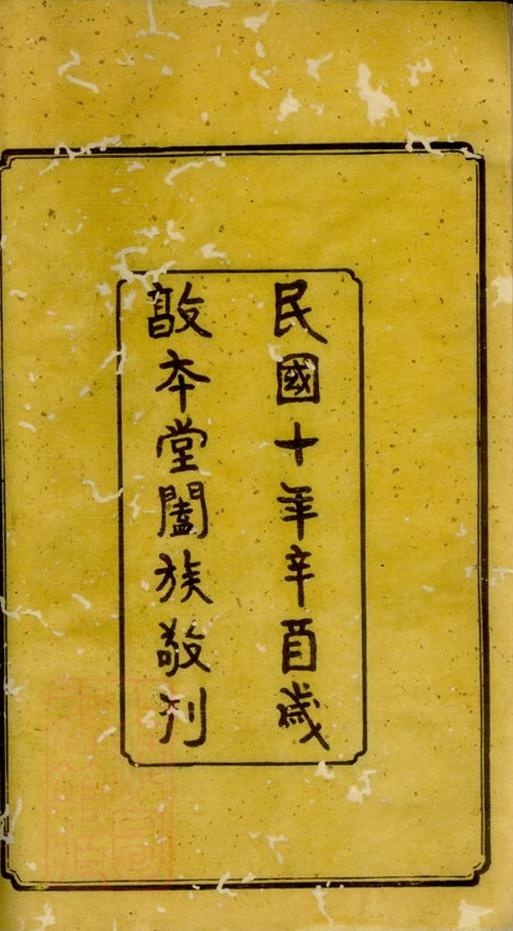 民國十年辛酉歲
敦本堂闔族敬刊